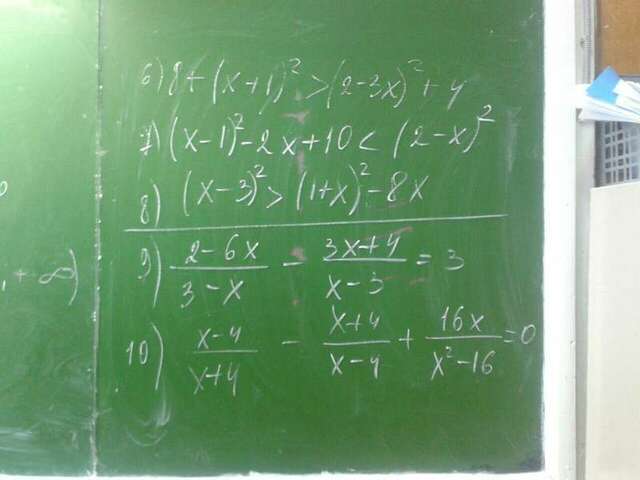 6) 8+(x+1)² > (2-3x)² + 4
7) (x-1)² - 2x + 10 < (2-x)²
8) (x-3)² > (1+x)² - 8x
, +∞)
9) \frac{2-6x}{3-x} - \frac{3x+4}{x-3} = 3
10) \frac{x-4}{x+4} - \frac{x+4}{x-4} + \frac{16x}{x²-16} = 0